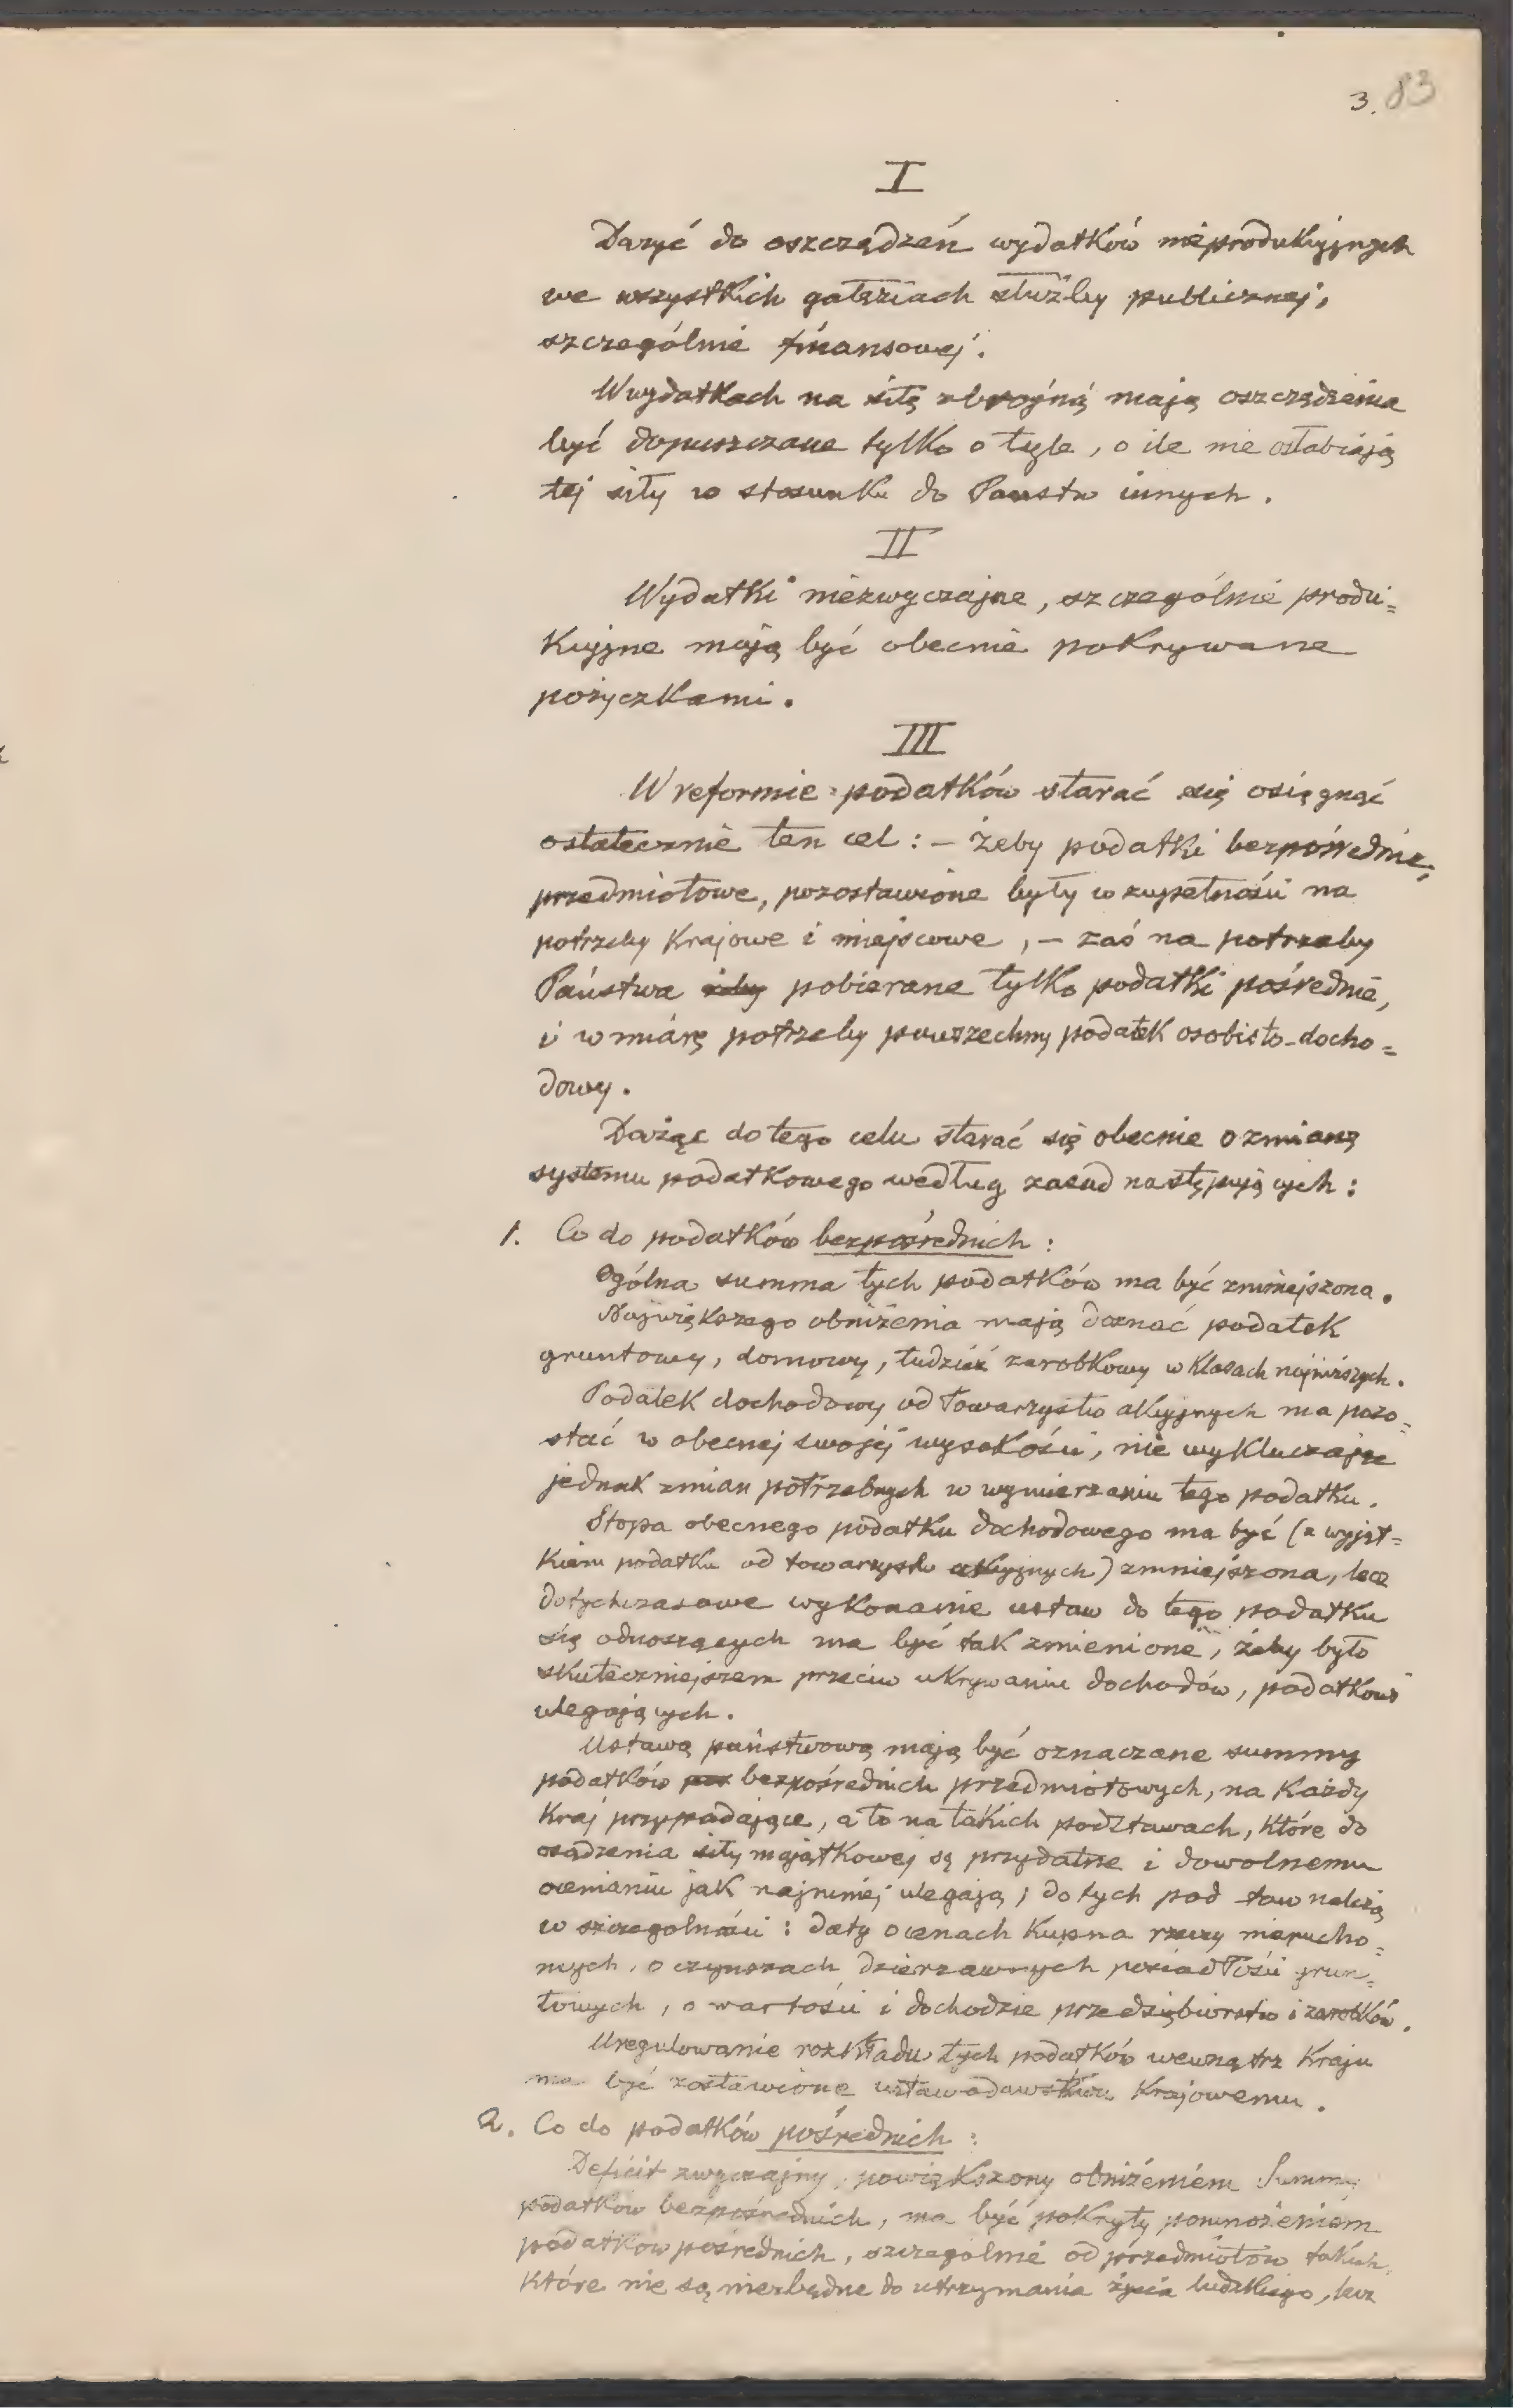 3. 83
I
Dążyć do oszczędzeń wydatków nieprodukcyjnych
we wszystkich gałęziach służby publicznej,
szczególnie finansowej.
W wydatkach na siłę zbrojną mają oszczędzenia
być dopuszczane tylko o tyle, o ile nie osłabiają
tej siły w stosunku do Państw innych.
II
Wydatki niezwyczajne, szczególnie produ=
kcyjne mają być obecnie pokrywane
pożyczkami.
III
W reformie podatków starać się osięgnąć
ostatecznie ten cel: – żeby podatki bezpośrednie,
przedmiotowe, pozostawione były w zupełności na
potrzeby krajowe i miejscowe, – zaś na potrzeby
Państwa żeby pobierane tylko podatki pośrednie,
i w miarę potrzeby powszechny podatek osobisto-docho=
dowy.
Dążąc do tego celu starać się obecnie o zmianę
systemu podatkowego według zasad następujących:
1. Co do podatków bezpośrednich:
Ogólna summa tych podatków ma być zmniejszona.
Największego obniżenia mają doznać podatek
gruntowy, domowy, tudzież zarobkowy w klasach najniższych.
Podatek dochodowy od Towarzystw akcyjnych ma pozo=
stać w obecnej swojej wysokości, nie wykluczając
jednak zmian potrzebnych w wymierzaniu tego podatku.
Stopa obecnego podatku dochodowego ma być (z wyjąt=
kiem podatku od towarzystw akcyjnych) zmniejszona, lecz
dotychczasowe wykonanie ustaw do tego podatku
się odnoszących ma być tak zmienione, żeby było
skuteczniejszem przeciw ukrywaniu dochodów, podatkowi
ulegających.
Ustawą państwową mają być oznaczane summy
podatków bezpośrednich przedmiotowych, na każdy
kraj przypadające, a to na takich podstawach, które do
osądzenia siły majątkowej są przydatne i dowolnemu
ocenianiu jak najmniej ulegają; do tych podstaw należą
w szczególności: daty o cenach kupna rzeczy nierucho=
mych, o czynszach dzierżawnych posiadłości grun=
towych, o wartości i dochodzie przedsiębiorstw i zarobków.
Uregulowanie rozkładu tych podatków wewnątrz kraju
ma być zostawione ustawodawstwu krajowemu.
2. Co do podatków pośrednich:
Deficit zwyczajny, powiększony obniżeniem Summy
podatków bezpośrednich, ma być pokryty pomnożeniem
podatków pośrednich, szczególnie od przedmiotów takich,
które nie są niezbędne do utrzymania życia ludzkiego, lecz